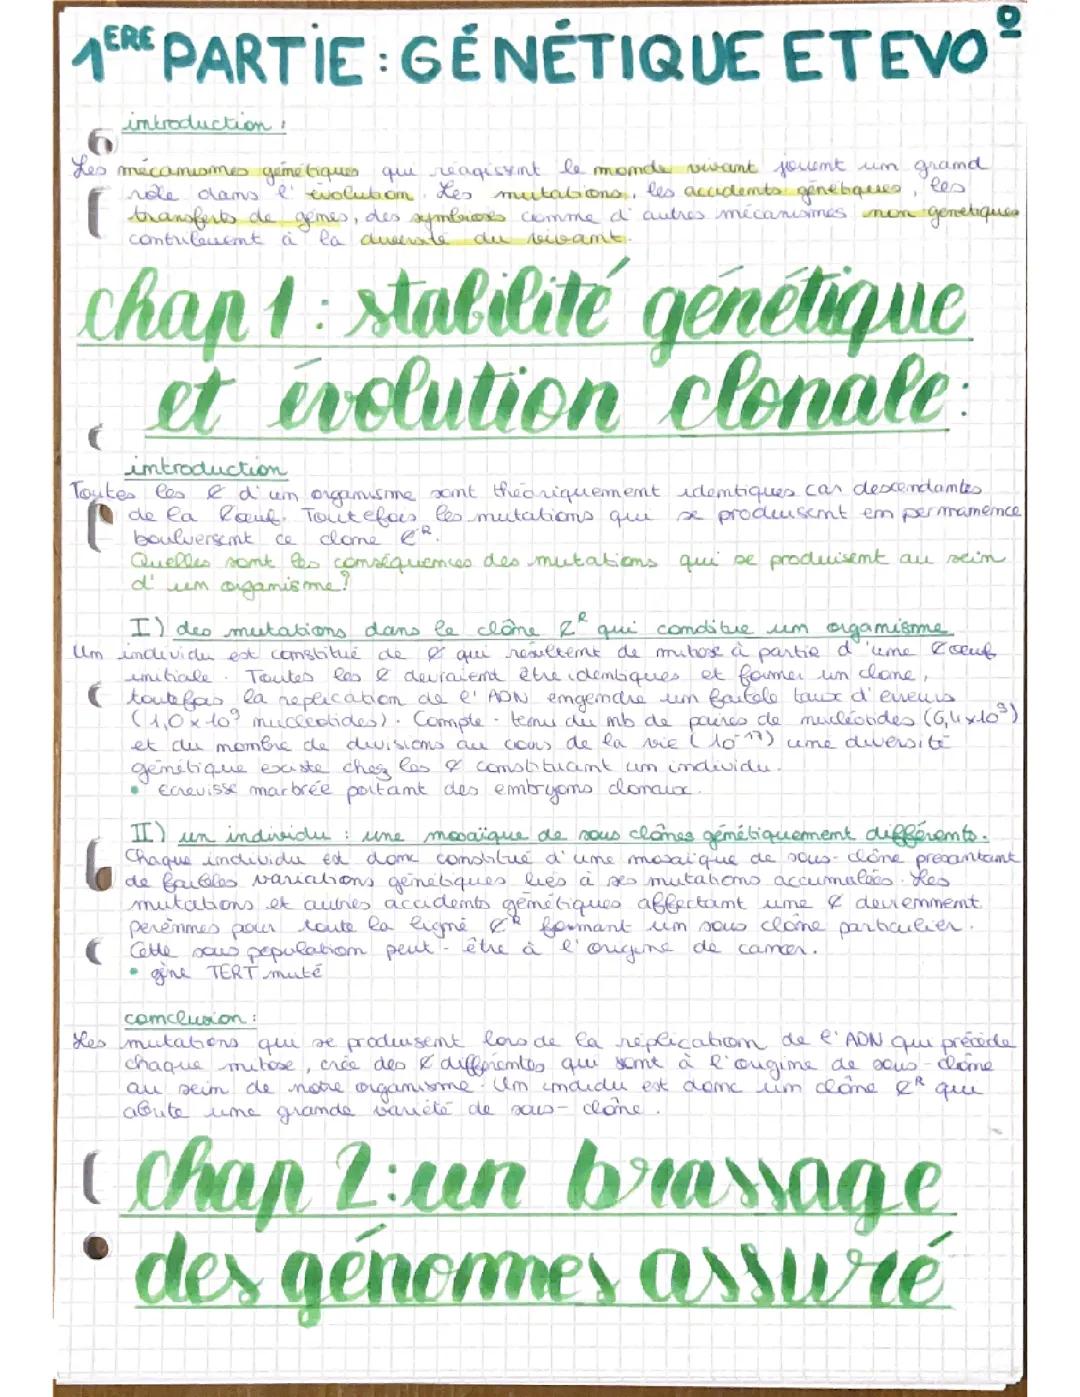 1ERE PARTIE : GÉNÉTIQUE ET EVO°
introduction :
Les mécanismes génétiques qui réagissent le monde vivant jouent un grand
rôle dans l'évolution. Les mutations, les accidents génétiques, les
transferts de gènes, des symbioses comme d'autres mécanismes non génétiques
contribuent à la diversité du vivant.
chap 1 : stabilité génétique
et évolution clonale :
introduction
Toutes les ¢ d'un organisme sont théoriquement identiques car descendantes
de la Cœuf. Toutefois les mutations qui se produisent en permanence
boulversent ce clone CR.
Quelles sont les conséquences des mutations qui se produisent au sein
d'un organisme ?
I) des mutations dans le clône CR qui conditue un organisme
Un individu est constitué de ¢ qui résultent de mitose à partie d'une Cœuf
initiale. Toutes les ¢ devraient être identiques et former un clone,
toutefois la replication de l'ADN engendre un faible taux d'erreurs
(1,0 x 10⁹ nucléotides). Compte-tenu du nb de paires de nucléotides (6,4 x 10⁹)
et du nombre de divisions au cours de la vie (10⁻¹⁷) une diversité
génétique existe chez les ¢ constituant un individu.
• Ecrevisse marbrée portant des embryons clonaux.
II) un individu : une mosaïque de sous clônes génétiquement différents.
Chaque individu est donc constitué d'une mosaïque de sous-clône présentant
de faibles variations génétiques liés à ses mutations accumulées. Les
mutations et autres accidents génétiques affectant une ¢ deviennent
pérennes pour toute la ligné CR formant un sous clône particulier.
Cette sous population peut-être à l'origine de cancer.
• gène TERT muté
conclusion :
Les mutations qui se produisent lors de la réplication de l'ADN qui précède
chaque mitose, crée des ¢ différentes qui sont à l'origine de sous-clône
au sein de notre organisme. Un individu est donc un clône CR qui
abrite une grande variété de sous-clône.
chap 2 : un brassage
des génomes assuré